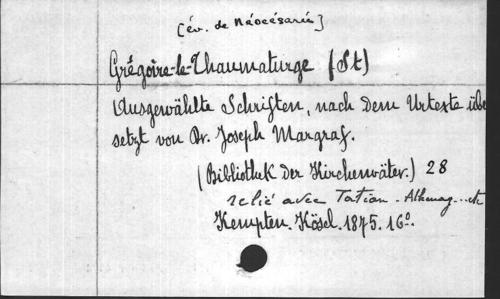 [év. de Néocésarée]
Grégoire-le-Thaumaturge (St)
Ausgewählte Schriften, nach dem Urtexte übe
setzt von Dr. Joseph Margraf.
(Bibliothek der Kirchenväter.) 28
relié avec Tatian - Athenag...etc
Kempten. Kösel. 1875. 16º.